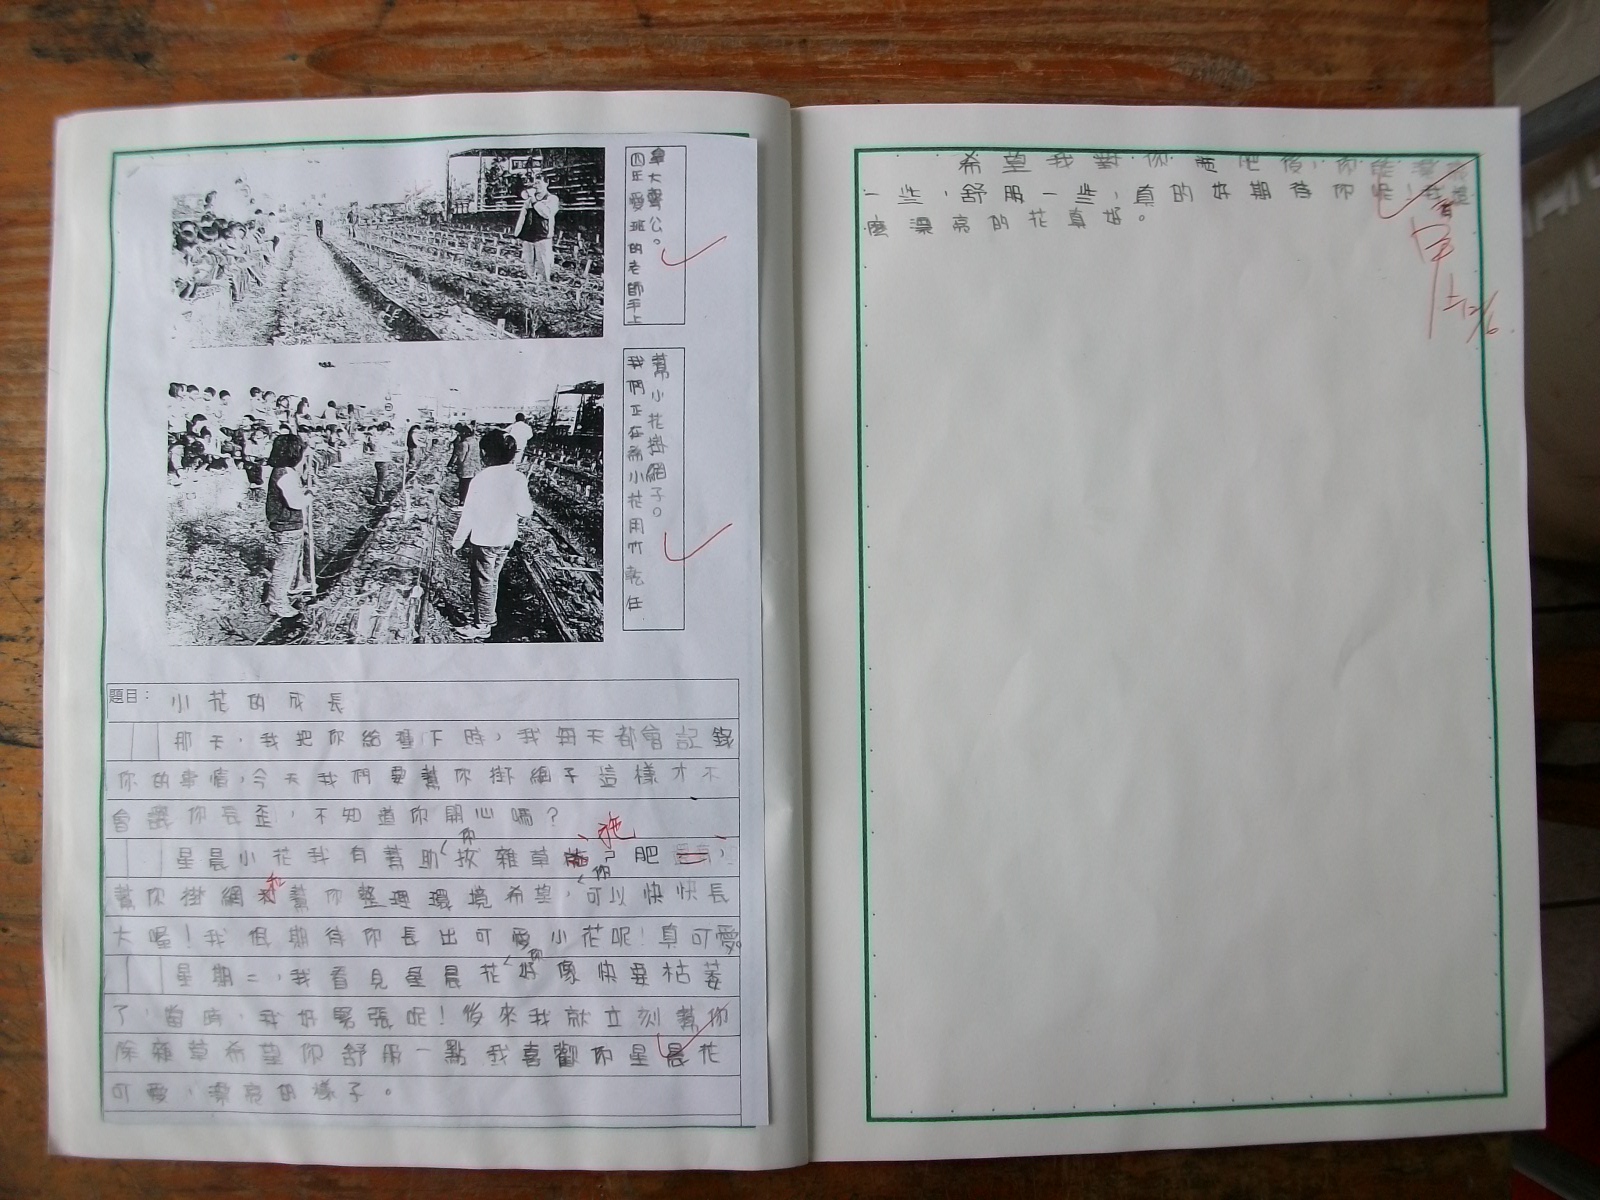 四年愛班的老師手上
拿大聲公。
我們正在幫小花用竹乾在
幫小花掛網子。
題目： 小花的成長
那天，我把你給種下時，我每天都會記錄
你的事情，今天我們要幫你掛網子這樣才不
會讓你長歪，不知道你開心嗎？
星晨小花我有幫助你拔雜草施肥，
幫你掛網和幫你整理環境希望，你可以快快長
大喔！我很期待你長出可愛小花呢！真可愛。
星期二，我看見星晨花你好像快要枯萎
了，當時，我好緊張呢！後來我就立刻幫你
除雜草希望你舒服一點我喜歡你星晨花
可愛，漂亮的樣子。
希望我對你施肥後，你能漂亮
一些，舒服一些，真的好期待你呢！我
麼漂亮的花真好。